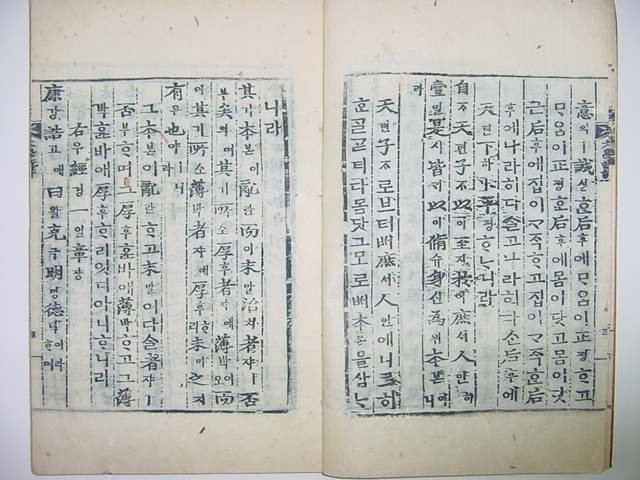 意의ㅣ誠셩ᄒᆞᆫ后후에ᄆᆞᄋᆞᆷ이正졍ᄒᆞ고
ᄆᆞᄋᆞᆷ이正졍ᄒᆞᆫ后후에몸이닷고몸이닷
근后후에집이ᄀᆞᄌᆨᄒᆞ고집이ᄀᆞᄌᆨᄒᆞᆫ后
후에나라히다ᄉᆞᆯ고나라히다ᄉᆞᆫ后후에
天텬下하ㅣ平평ᄒᆞᄂᆞ니라
自ᄌᆞ天텬子ᄌᆞ以이至지於어庶셔人인히
壹일是시皆ᄀᆡ以이脩슈身신爲위本본이니
라
天텬子ᄌᆞ로브터ᄡᅥ庶셔人인애니르히
ᄒᆞᆫᄀᆞᆯᄀᆞ티다몸닷그모로ᄡᅥ本본을삼ᄂᆞ
니라
其기本본이亂란而이末말治티者쟈ㅣ否
부矣의며其기所소厚후者쟈애薄박이오而
이其기所소薄박者쟈애厚후ᄒᆞ리未미之지
有유也야ㅣ니라
그本본이亂란ᄒᆞ고末말이다ᄉᆞᆯ者쟈ㅣ
否부ᄒᆞ며그厚후ᄒᆞᆯ바애薄박ᄒᆞ고그薄
박ᄒᆞᆯ바애厚후ᄒᆞ리잇디아니ᄒᆞ니라
右우ᄂᆞᆫ經경一일章쟝
康강誥고애曰왈克극明명德덕이라ᄒᆞ며